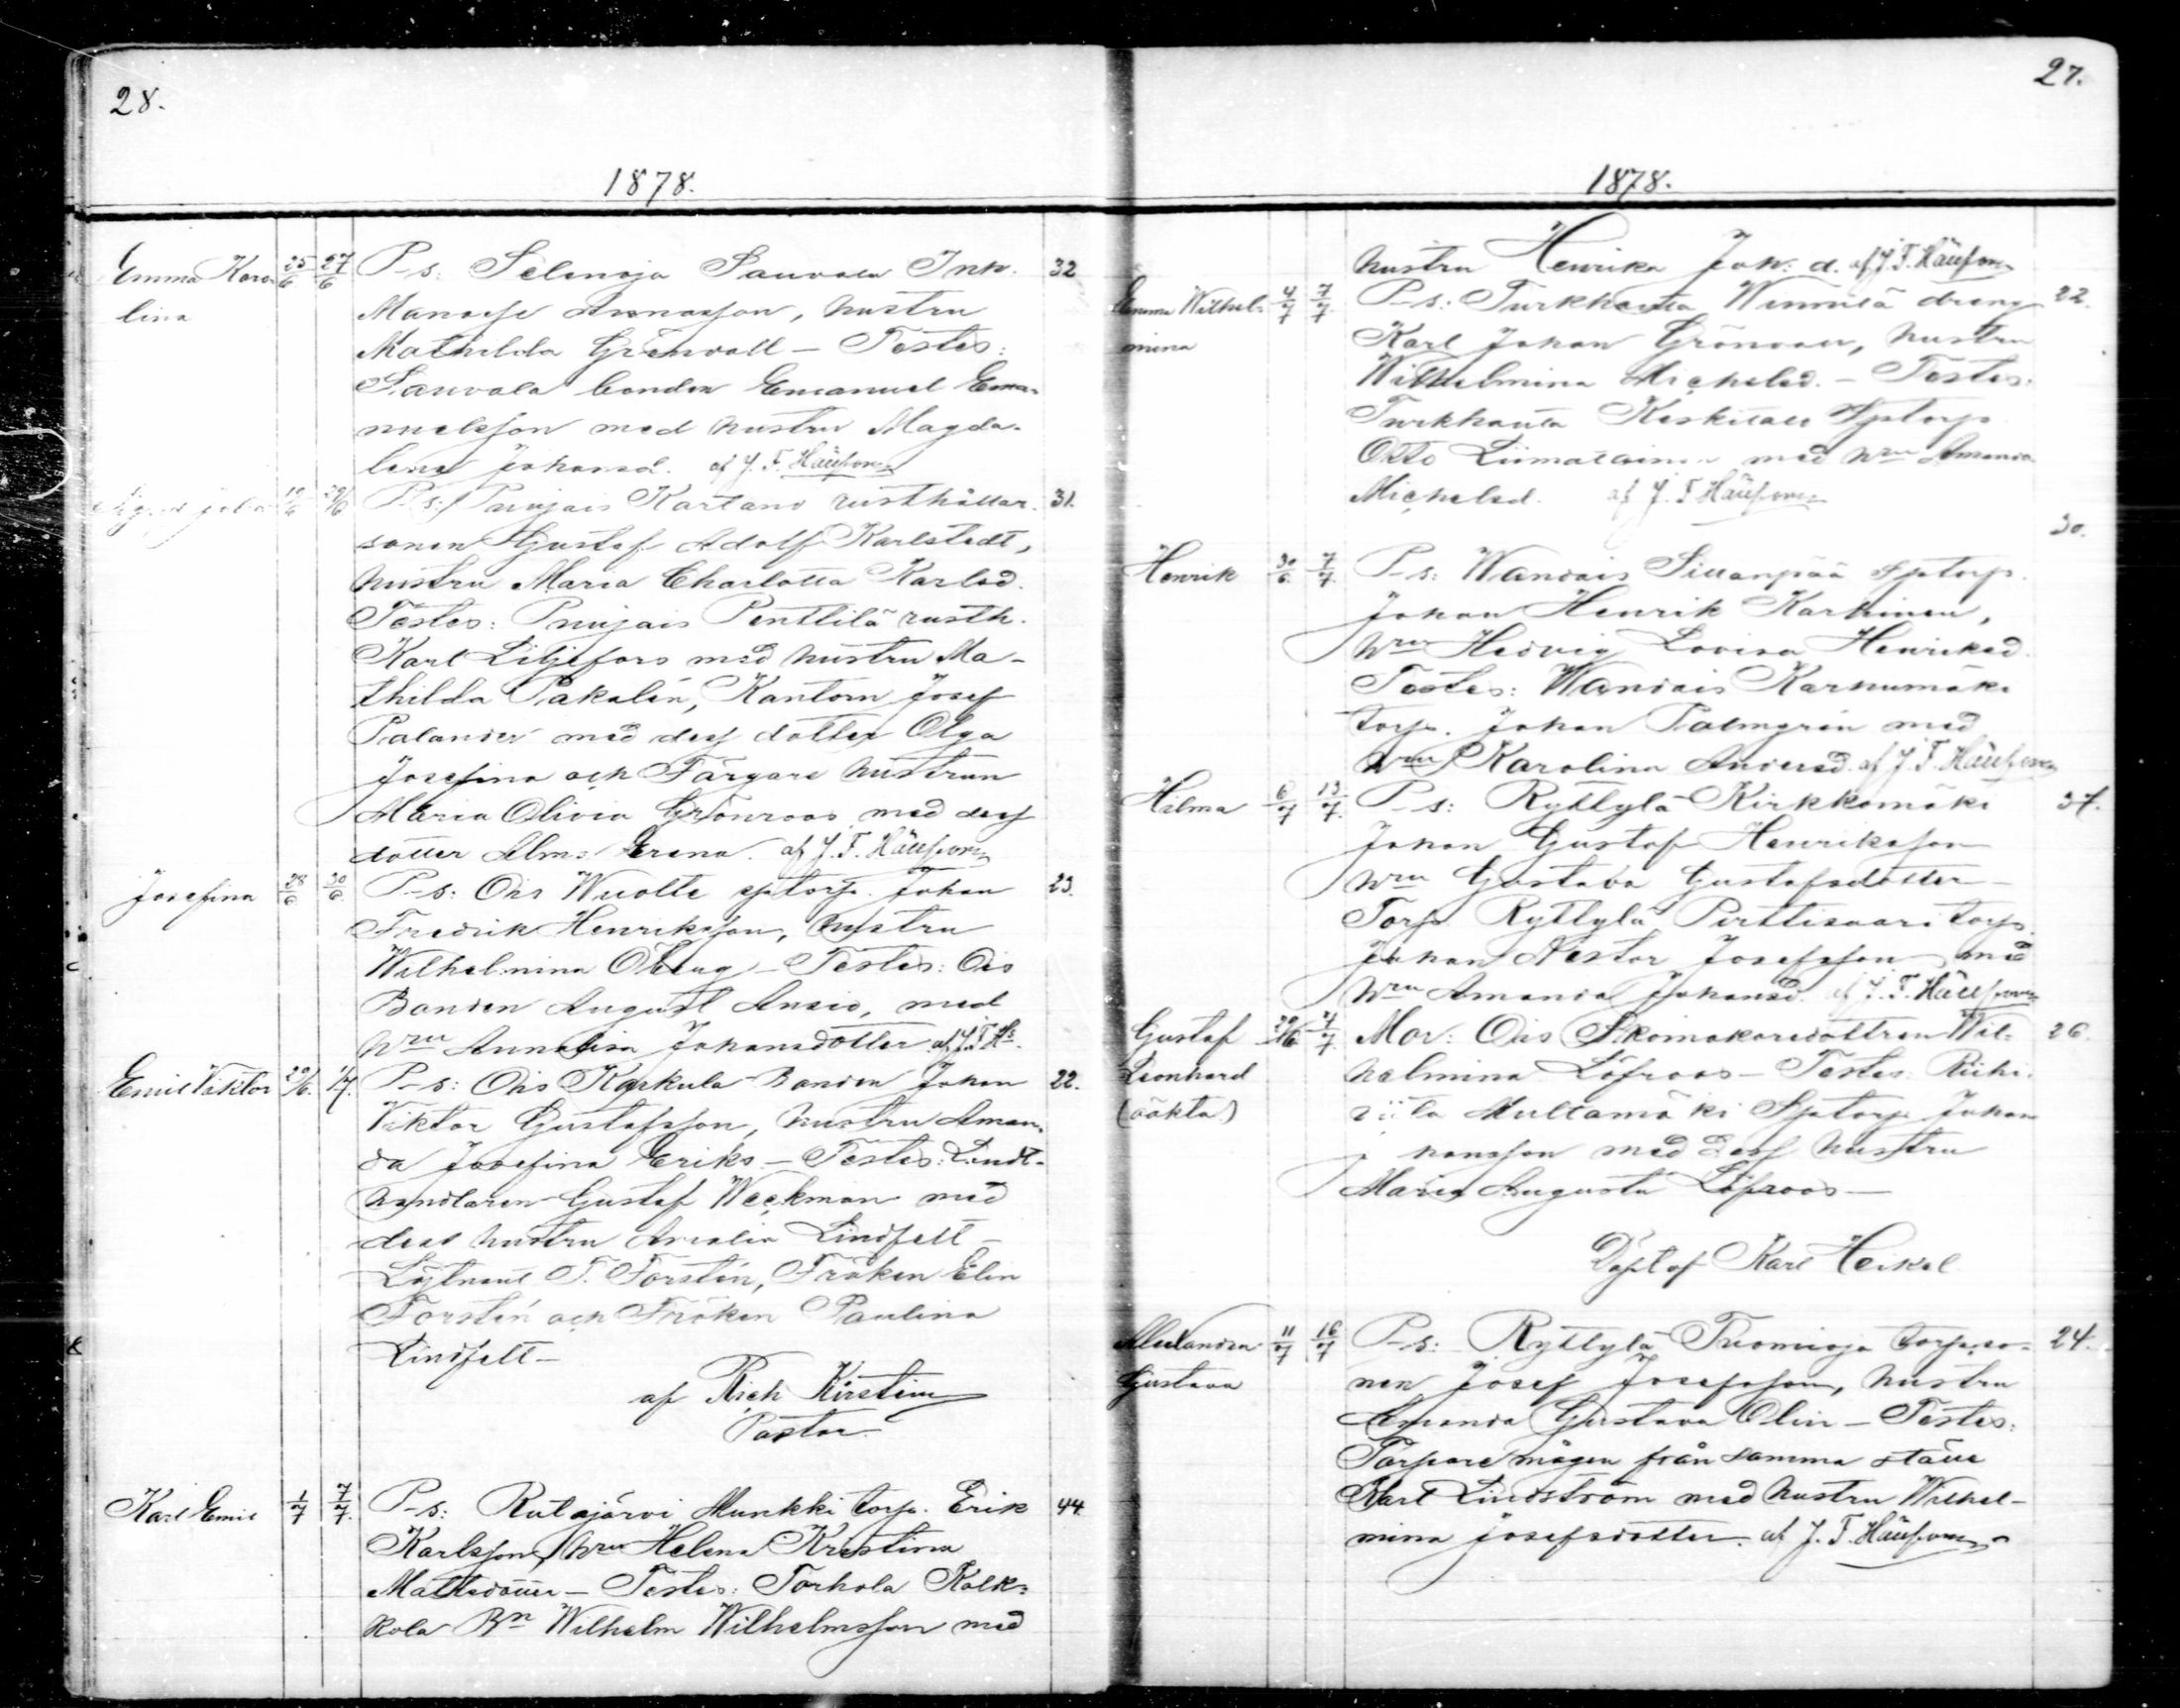 28.
1878.
Emma Karo-
lina
25/6 27/6 P-s: Selänoja Sauvala Inh. 32
Manasse Ananasson, hustru
Mathilda Grönvall – Testes:
Sauvala bonden Emanuel Ema-
nuelsson med hustru Magda-
lena Johansd. af J. F. Häusson
19/6 29/6 P-s: Puujais Kartano rusthållar- 31.
sonen Gustaf Adolf Karlstedt,
hustru Maria Charlotta Karlsd.
Testes: Puujais Penttilä rusth.
Karl Liljefors med hustru Ma-
thilda Pakalén, Kantorn Josef
Palander med dess dotter Olga
Josefina och Färgare hustrun
Maria Olivia Grönroos med dess
dotter Alma Irena. af J. F. Häusson
Josefina 28/6 30/6 P-s: Ois Wuolte sptorp. Johan 23.
Fredrik Henriksson, hustru
Wilhelmina Öberg – Testes: Ois
Bonden August Ansio, med
hru Annalisa Johansdotter af J. F. Hs.
Emil Viktor 20/6. 1/7. P-s: Ois Karkula Bonden Johan 22.
Viktor Gustafsson, hustru Aman-
da Josefina Eriks – Testes: Landt-
handlaren Gustaf Weckman med
dess hustru Amalia Lindfelt –
Löjtnant T. Forstén, Fröken Elin
Forstén och Fröken Paulina
Lindfelt –
af Rich Kirstein
Pastor
Karl Emil 1/7 7/7. P-s: Rutajärvi Munkki torp. Erik 44.
Karlsson, hru Helena Kristina
Mattsdotter – Testes: Torhola Kolk-
kola Bn Wilhelm Wilhelmsson med
27.
1878.
hustru Henrika Joh: d. af J. F. Häusson
Emma Wilhel-
mina
4/7 7/7. P-s: Turkhauta Winnilä dreng 22.
Karl Johan Grönvall, hustru
Wilhelmina Michelsd. – Testes:
Turkhauta Keskitalo Sptorp.
Otto Liimatainen med hru Amanda
Michelsd. af J. F. Häusson
30.
Henrik 30/6. 7/7. P-s: Wandais Sillanpää sptorp.
Johan Henrik Karhinen,
hru Hedvig Lovisa Henriksd.
Testes: Wandais Karhumäki
torp. Johan Palmgrén med
hru Karolina Andersd. af J. F. Häusson
Hilma 6/7 13/7. P-s: Ryttylä Kirkkomäki 37.
Johan Gustaf Henriksson
hru Gustava Gustafsdotter –
Torp. Ryttylä Pirttisaari torp.
Johan Nestor Josefsson med
hru Amanda Johansd. af J. F. Häusson
Gustaf
Leonhard
(oäkta)
29/6 7/7. Mor: Ois Skomakaredottren Wil- 26.
helmina Löfroos – Testes: Riihi-
viita Multamäki Sptorp. Johan
hansson med dess hustru
Maria Augusta Löfroos –
Döpt af Karl Heikel
Alexandra
Gustava
11/7 16/7 P-s: Ryttylä Tuomioja torpso- 24.
nen Josef Josefsson, hustru
Amanda Gustava Olin – Testes:
Torpare mågen från samma ställe
Karl Lindström med hustru Wilhel-
mina Josefsdotter. af J. F. Häusson